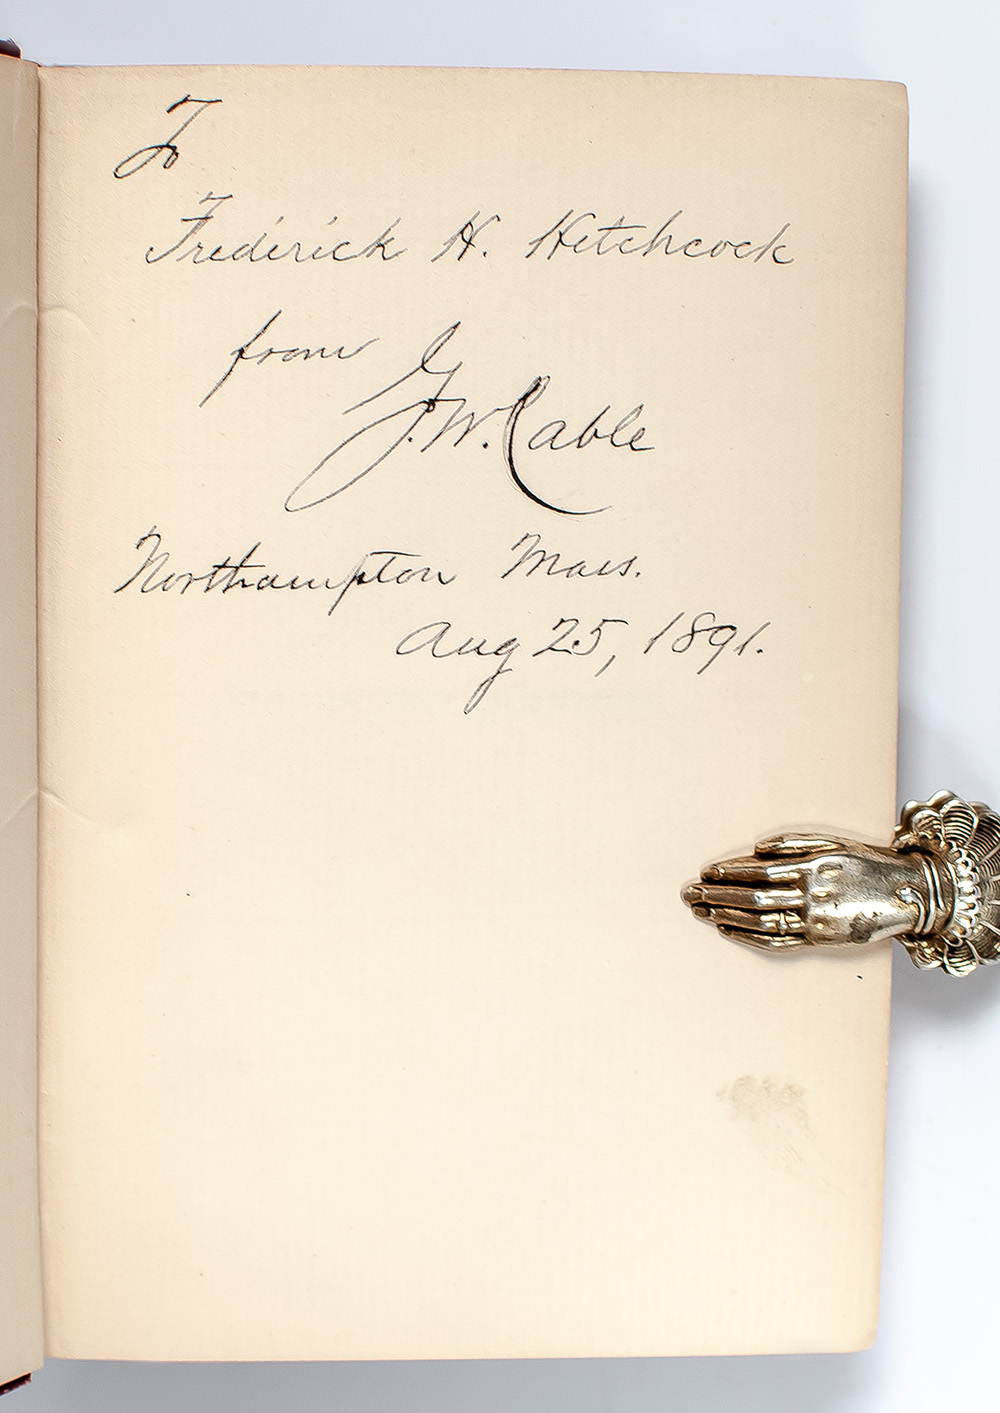 To
Frederick H. Hitchcock
from
G.W. Cable
Northampton Mass.
Aug 25, 1891.